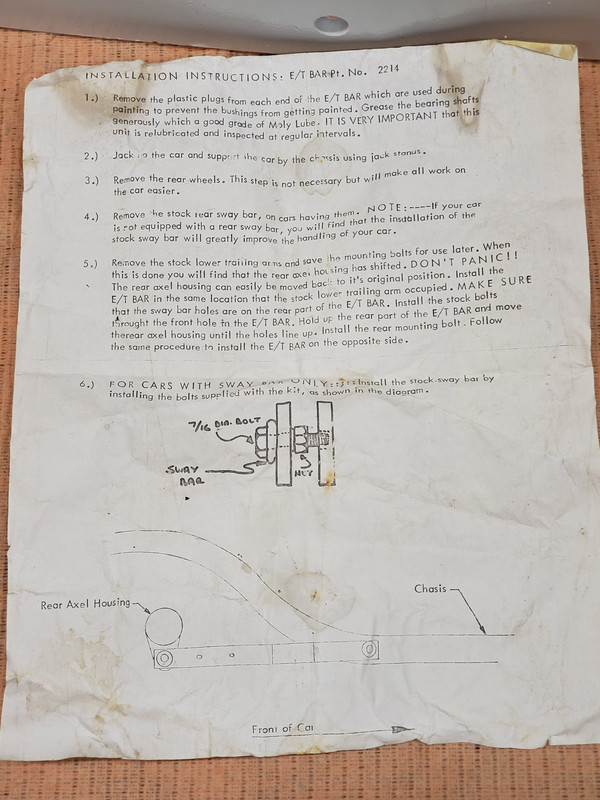 INSTALLATION INSTRUCTIONS: E/T BAR Pt. No. 2214
1.) Remove the plastic plugs from each end of the E/T BAR which are used during
painting to prevent the bushings from getting painted. Grease the bearing shafts
generously which a good grade of Moly Lube. IT IS VERY IMPORTANT that this
unit is relubricated and inspected at regular intervals.
2.) Jack up the car and support the car by the chassis using jack stands.
3.) Remove the rear wheels. This step is not necessary but will make all work on
the car easier.
4.) Remove the stock rear sway bar, on cars having them. NOTE:----If your car
is not equipped with a rear sway bar, you will find that the installation of the
stock sway bar will greatly improve the handling of your car.
5.) Remove the stock lower trailing arms and save the mounting bolts for use later. When
this is done you will find that the rear axel housing has shifted. DON'T PANIC!!
The rear axel housing can easily be moved back to it's original position. Install the
E/T BAR in the same location that the stock lower trailing arm occupied. MAKE SURE
that the sway bar holes are on the rear part of the E/T BAR. Install the stock bolts
throught the front hole in the E/T BAR. Hold up the rear part of the E/T BAR and move
therear axel housing until the holes line up. Install the rear mounting bolt. Follow
the same procedure to install the E/T BAR on the opposite side.
6.) FOR CARS WITH SWAY ONLY Install the stock sway bar by
installing the bolts supplied with the kit, as shown in the diagram.
7/16 DIA. BOLT
SWAY
BAR
NUT
Chasis
Rear Axel Housing
Front of Car